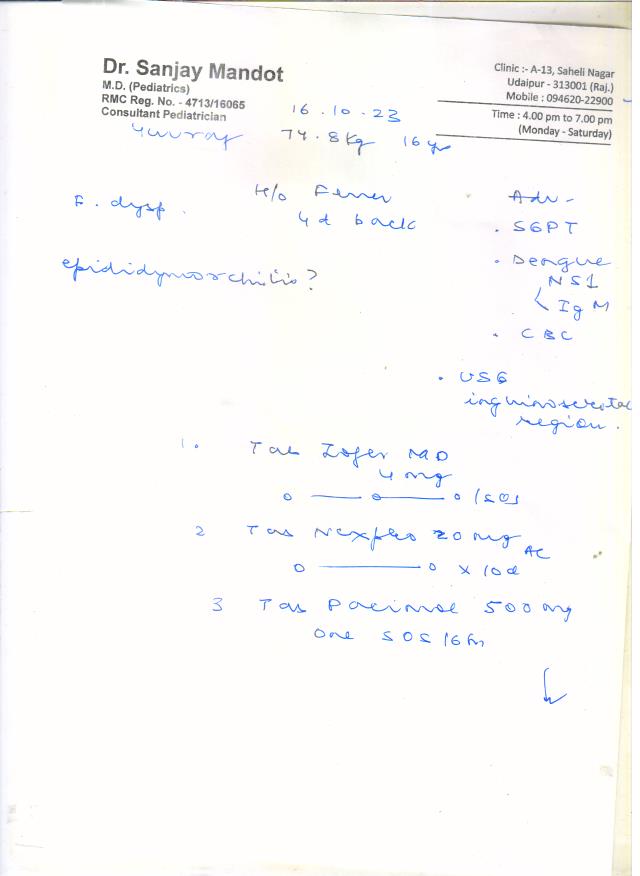 Dr. Sanjay Mandot
M.D. (Pediatrics)
RMC Reg. No. - 4713/16065
Consultant Pediatrician
Clinic :- A-13, Saheli Nagar
Udaipur - 313001 (Raj.)
Mobile : 094620-22900
Time : 4.00 pm to 7.00 pm
(Monday - Saturday)
16.10.23
Yuvraj 74.8 Kg 16 yr
F. dysp.
H/o Fever
4d back
epididymoorchitis?
Adv -
. SGPT
. Dengue
NS1
IgM
. CBC
. USG
inguinoscrotal
region.
1. Tab Zofer MD
4 mg
0 — 0 — 0 / SOS
2 Tab Nexpro 20 mg
AC
0 — 0 x 10d
3 Tab Pacimol 500 mg
One SOS / 6 hr